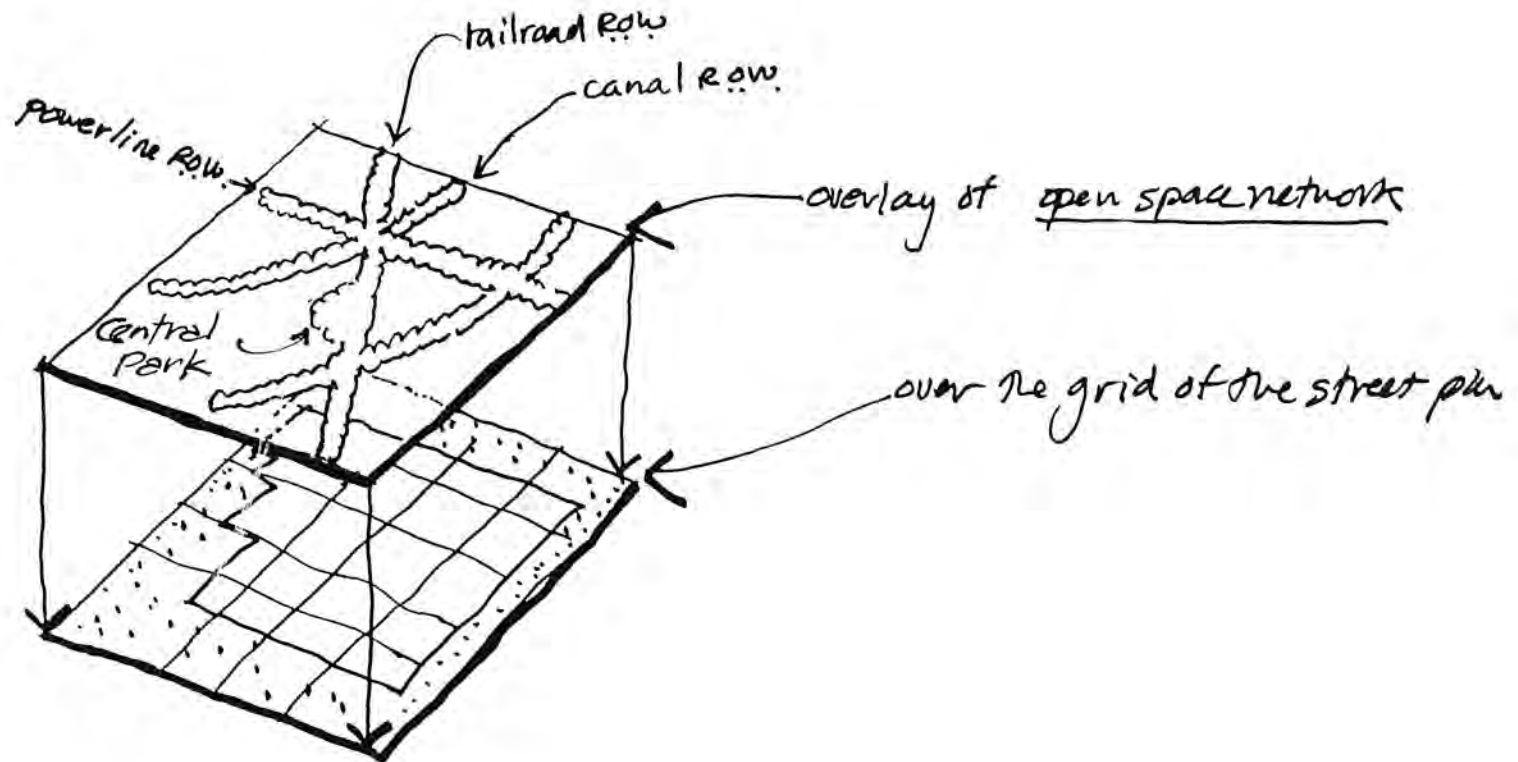 railroad R.O.W.
canal R.O.W.
Powerline R.O.W.
overlay of open space network
Central
Park
over the grid of the street plan